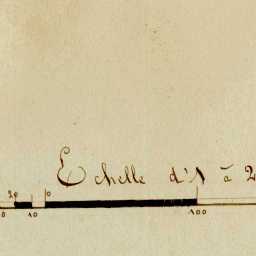 Echelle d'1 à 2
20 0
10 100